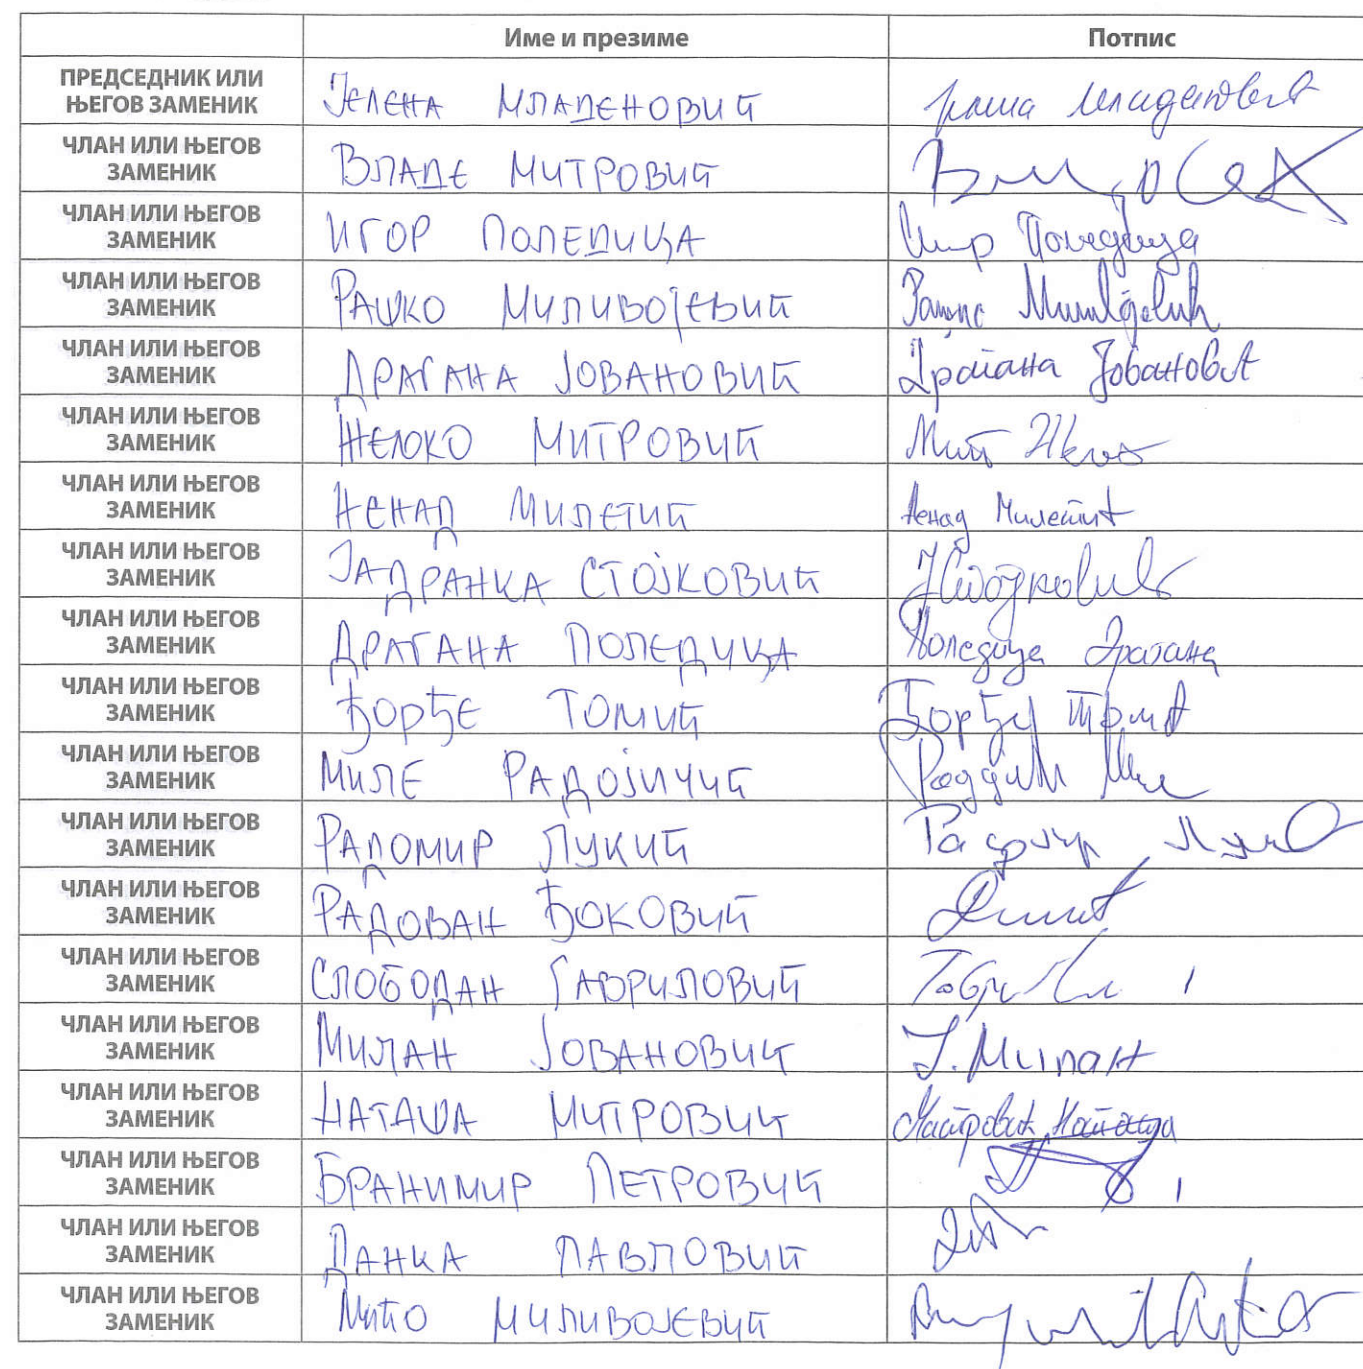 Име и презиме Потпис
ПРЕДСЕДНИК ИЛИ
ЊЕГОВ ЗАМЕНИК
ЈЕЛЕНА МЛАДЕНОВИЋ
ЧЛАН ИЛИ ЊЕГОВ
ЗАМЕНИК
ВЛАДЕ МИТРОВИЋ
ЧЛАН ИЛИ ЊЕГОВ
ЗАМЕНИК
ИГОР ПОЛЕДИЦА Игор Поледица
ЧЛАН ИЛИ ЊЕГОВ
ЗАМЕНИК
РАШКО МИЛИВОЈЕВИЋ
ЧЛАН ИЛИ ЊЕГОВ
ЗАМЕНИК
ДРАГАНА ЈОВАНОВИЋ Драгана Јовановић
ЧЛАН ИЛИ ЊЕГОВ
ЗАМЕНИК
МИТРОВИЋ
ЧЛАН ИЛИ ЊЕГОВ
ЗАМЕНИК
НЕНАД МИЛЕТИЋ Ненад Милетић
ЧЛАН ИЛИ ЊЕГОВ
ЗАМЕНИК
ЈАДРАНКА СТОЈКОВИЋ ЈСтојковић
ЧЛАН ИЛИ ЊЕГОВ
ЗАМЕНИК
ДРАГАНА ПОЛЕДИЦА Поледица Драгана
ЧЛАН ИЛИ ЊЕГОВ
ЗАМЕНИК
ЂОРЂЕ ТОМИЋ Ђорђе Томић
ЧЛАН ИЛИ ЊЕГОВ
ЗАМЕНИК
МИЛЕ РАДОЈИЧИЋ
ЧЛАН ИЛИ ЊЕГОВ
ЗАМЕНИК
РАДОМИР ЛУКИЋ
ЧЛАН ИЛИ ЊЕГОВ
ЗАМЕНИК
РАДОВАН ЂОКОВИЋ
ЧЛАН ИЛИ ЊЕГОВ
ЗАМЕНИК
СЛОБОДАН ГАВРИЛОВИЋ
ЧЛАН ИЛИ ЊЕГОВ
ЗАМЕНИК
МИЛАН ЈОВАНОВИЋ Ј. Милан
ЧЛАН ИЛИ ЊЕГОВ
ЗАМЕНИК
НАТАША МИТРОВИЋ Митровић Наташа
ЧЛАН ИЛИ ЊЕГОВ
ЗАМЕНИК
БРАНИМИР ПЕТРОВИЋ
ЧЛАН ИЛИ ЊЕГОВ
ЗАМЕНИК
ДАНКА ПАВЛОВИЋ
ЧЛАН ИЛИ ЊЕГОВ
ЗАМЕНИК
МИЛИВОЈЕВИЋ